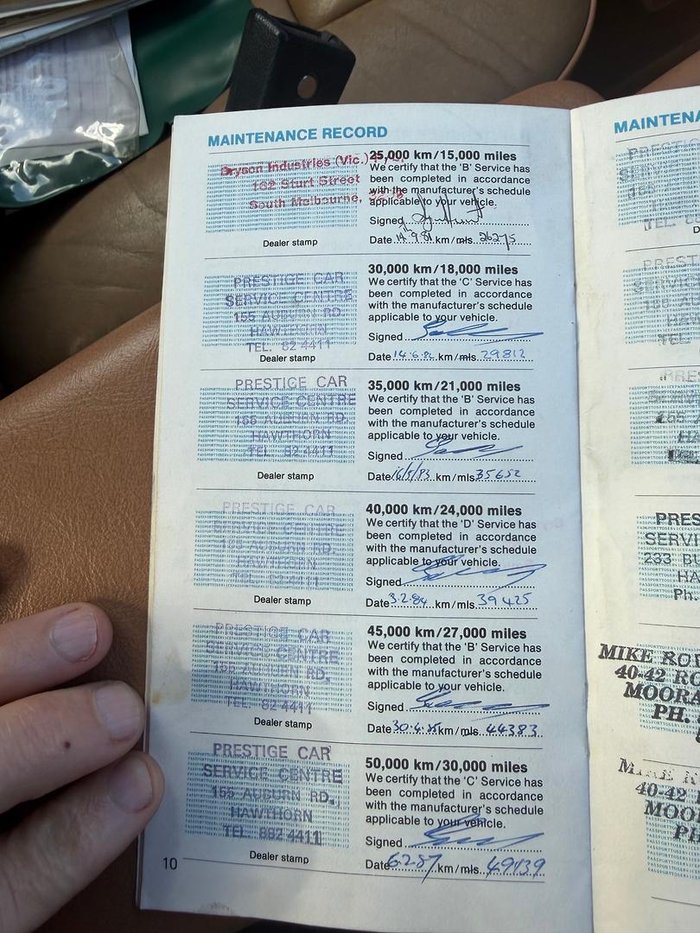 MAINTENANCE RECORD
Bryson Industries (Vic.)
162 Sturt Street
South Melbourne,
Dealer stamp
25,000 km/15,000 miles
We certify that the 'B' Service has
been completed in accordance
with the manufacturer's schedule
applicable to your vehicle.
Signed
Date 14 9 81 km/mls 26275
PRESTIGE CAR
SERVICE CENTRE
155 AUBURN RD.
HAWTHORN
TEL. 82 4411
Dealer stamp
30,000 km/18,000 miles
We certify that the 'C' Service has
been completed in accordance
with the manufacturer's schedule
applicable to your vehicle.
Signed
Date 14.6.82 km/mls 29812
PRESTIGE CAR
SERVICE CENTRE
166 AUBURN RD.
HAWTHORN
TEL 82 4411
Dealer stamp
35,000 km/21,000 miles
We certify that the 'B' Service has
been completed in accordance
with the manufacturer's schedule
applicable to your vehicle.
Signed
Date 16/5/83 km/mls 35652
PRESTIGE CAR
SERVICE CENTRE
AUBURN RD.
HAWTHORN
Dealer stamp
40,000 km/24,000 miles
We certify that the 'D' Service has
been completed in accordance
with the manufacturer's schedule
applicable to your vehicle.
Signed
Date 3.2.84 km/mls 39425
PRESTIGE CAR
SERVICE CENTRE
166 AUBURN RD.
HAWTHORN
TEL. 82 4411
Dealer stamp
45,000 km/27,000 miles
We certify that the 'B' Service has
been completed in accordance
with the manufacturer's schedule
applicable to your vehicle.
Signed
Date 30.4.85 km/mls 44383
PRESTIGE CAR
SERVICE CENTRE
166 AUBURN RD.
HAWTHORN
TEL. 882 4411
Dealer stamp
50,000 km/30,000 miles
We certify that the 'C' Service has
been completed in accordance
with the manufacturer's schedule
applicable to your vehicle.
Signed
Date 6 2 87 km/mls 49139
10
MAINTENA
PREST
SERVIC
TEL.
PRES
SERVI
233 BU
HA
Ph.
MIKE ROU
40-42 RO
MOOR
PH.
MIKE R
40-42
MOO